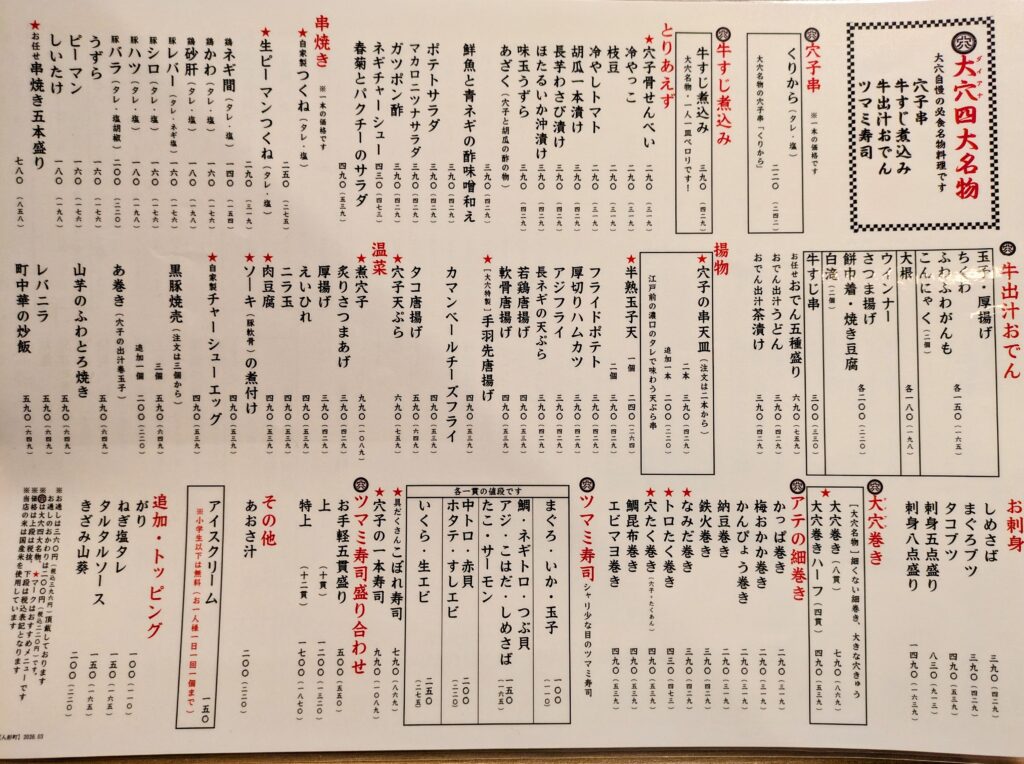 大穴四大名物
ダイアナ
大穴自慢の必食名物料理です
穴子串
牛すじ煮込み
牛出汁おでん
ツマミ寿司
穴子串 ※一本の価格です
くりから（タレ・塩） 二二〇（二四二）
大穴名物の穴子串「くりから」
牛すじ煮込み
牛すじ煮込み 三九〇（四二九）
大穴名物・一人一皿ペロリです！
とりあえず
★穴子骨せんべい 二九〇（三一九）
冷やっこ 二九〇（三一九）
枝豆 二九〇（三一九）
冷やしトマト 二九〇（三一九）
胡瓜一本漬け
長芋わさび漬け 三九〇（四二九）
ほたるいか沖漬け 三九〇（四二九）
味玉うずら 三九〇（四二九）
あざく（穴子と胡瓜の酢の物） 三九〇（四二九）
鮮魚と青ネギの酢味噌和え 三九〇（四二九）
ポテトサラダ 三九〇（四二九）
マカロニツナサラダ 三九〇（四二九）
ガツポン酢 三九〇（四二九）
ネギチャーシュー 四三〇（四七三）
春菊とパクチーのサラダ 四九〇（五三九）
串焼き ※一本の価格です
★自家製つくね（タレ・塩） 二五〇（二七五）
★生ピーマンつくね（タレ・塩） 二九〇（三一九）
鶏ネギ間（タレ・塩） 一四〇（一五四）
鶏かわ（タレ・塩） 一六〇（一七六）
鶏砂肝（タレ・塩） 一八〇（一九八）
豚レバー（タレ・ネギ塩） 一六〇（一七六）
豚シロ（タレ・塩） 一六〇（一七六）
豚ハツ（タレ・塩） 一八〇（一九八）
豚バラ（タレ・塩胡椒） 二〇〇（二二〇）
うずら 一六〇（一七六）
ピーマン 一六〇（一七六）
しいたけ 一八〇（一九八）
★お任せ串焼き五本盛り 七八〇（八五八）
牛出汁おでん
玉子・厚揚げ
ちくわ 各一五〇（一六五）
ふわふわがんも
こんにゃく（二個）
大根 各一八〇（一九八）
ウィンナー
さつま揚げ
餅巾着・焼き豆腐 各二〇〇（二二〇）
白湾（二個）
牛すじ串 三〇〇（三三〇）
お任せおでん五種盛り 六九〇（七五九）
おでん出汁うどん 三九〇（四二九）
おでん出汁茶漬け 三九〇（四二九）
揚物
★穴子の串天皿（注文は二本から） 二本 三九〇（四二九）
追加一本 二〇〇（二二〇）
江戸前の濃口のタレで味わう天ぷら串
★半熟玉子天 一個 二四〇（二六四）
二個 三九〇（四二九）
フライドポテト 三九〇（四二九）
厚切りハムカツ 三九〇（四二九）
アジフライ 三九〇（四二九）
長ネギの天ぷら 三九〇（四二九）
若鶏唐揚げ 四九〇（五三九）
軟骨唐揚げ 四九〇（五三九）
★【大穴特製】手羽先唐揚げ 四九〇（五三九）
カマンベールチーズフライ 四九〇（五三九）
タコ唐揚げ 四九〇（五三九）
★穴子天ぷら 六九〇（七五九）
温菜
★煮穴子 九九〇（一〇八九）
炙りさつまあげ 三九〇（四二九）
厚揚げ 三九〇（四二九）
えいひれ 四九〇（五三九）
ニラ玉 四九〇（五三九）
★肉豆腐 四九〇（五三九）
★ソーキ（豚軟骨）の煮付け 四九〇（五三九）
★自家製チャーシューエッグ 四九〇（五三九）
黒豚焼売（注文は三個から） 三個 五九〇（六四九）
追加一個 二〇〇（二二〇）
あ巻き（穴子の出汁巻玉子） 五九〇（六四九）
山芋のふわとろ焼き 五九〇（六四九）
レバニラ 五九〇（六四九）
町中華の炒飯 五九〇（六四九）
お刺身
しめさば 三九〇（四二九）
まぐろブツ 三九〇（四二九）
タコブツ 四九〇（五三九）
刺身五点盛り 八三〇（九一三）
刺身八点盛り 一四九〇（一六三九）
大穴巻き
【大穴名物】細くない細巻き、大きな穴きゅう
★大穴巻き（八貫） 七九〇（八六九）
大穴巻きハーフ（四貫） 四九〇（五三九）
アテの細巻き
かっぱ巻き 二九〇（三一九）
梅おかか巻き 三九〇（四二九）
かんぴょう巻き 三九〇（四二九）
納豆巻き 三九〇（四二九）
鉄火巻き 三九〇（四二九）
★なみだ巻き 三九〇（四二九）
★トロたく巻き 四三〇（四七三）
★穴たく巻き（穴子・たくあん） 四九〇（五三九）
鯛昆布巻き 四九〇（五三九）
エビマヨ巻き 四九〇（五三九）
ツマミ寿司 シャリ少な目のツマミ寿司
各一貫の値段です
まぐろ・いか・玉子 一〇〇（一一〇）
鯛・ネギトロ・つぶ貝
アジ・こはだ・しめさば
たこ・サーモン 一五〇（一六五）
中トロ・赤貝
ホタテ・すしエビ 二〇〇（二二〇）
いくら・生エビ 二五〇（二七五）
★具だくさんこぼれ寿司 七九〇（八六九）
★穴子の一本寿司 九九〇（一〇八九）
ツマミ寿司盛り合わせ
お手軽五貫盛り 五〇〇（五五〇）
上（十貫） 一二〇〇（一三二〇）
特上（十二貫） 一七〇〇（一八七〇）
その他
あおさ汁 二〇〇（二二〇）
アイスクリーム 一五〇
※小学生以下は無料（お一人様一日一回一個まで）
追加・トッピング
がり 一〇〇（一一〇）
ねぎ塩タレ 一五〇（一六五）
タルタルソース 一五〇（一六五）
きざみ山葵 二〇〇（二二〇）
※お通しは三六〇円（税込三九六円）頂戴しております
お通しのおかわりは二〇〇円（税込二二〇円）です。
※㊅は大穴四大名物、★マークはおすすめメニューです
※価格は上段は税抜、下段は税込表記となります
※当店の米は国産米を使用しています
【人形町】2026.03